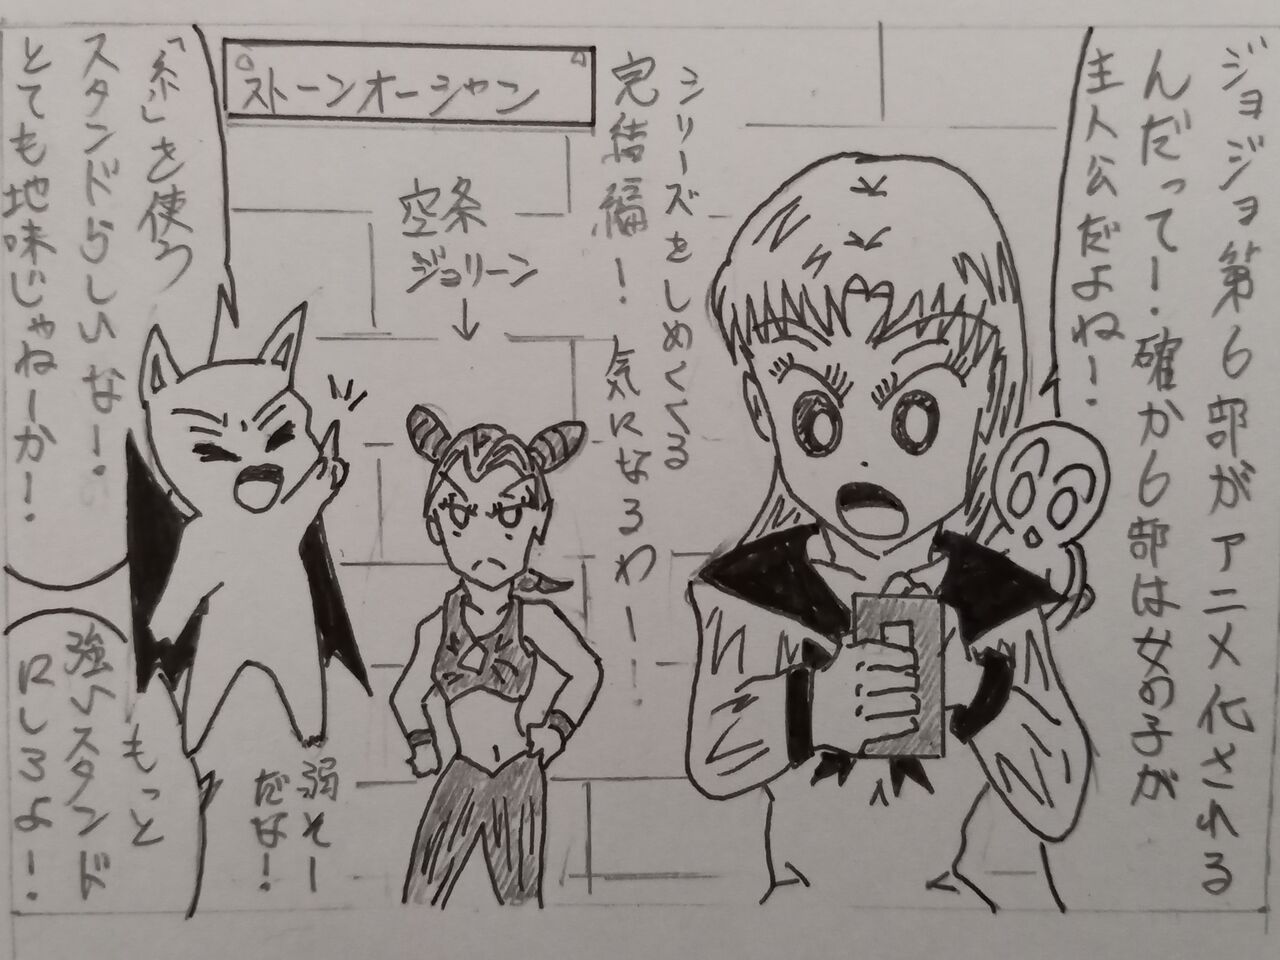 ジョジョ第6部がアニメ化される
んだって!確か6部は女の子が
主人公だよね!
シリーズをしめくくる
完結編!気になるわー!
ストーンオーシャン
空条
ジョリーン
↓
「糸」を使う
スタンドらしいなー.
とても地味じゃねーか!
弱そー
だな!
もっと
強いスタンド
にしろよ!